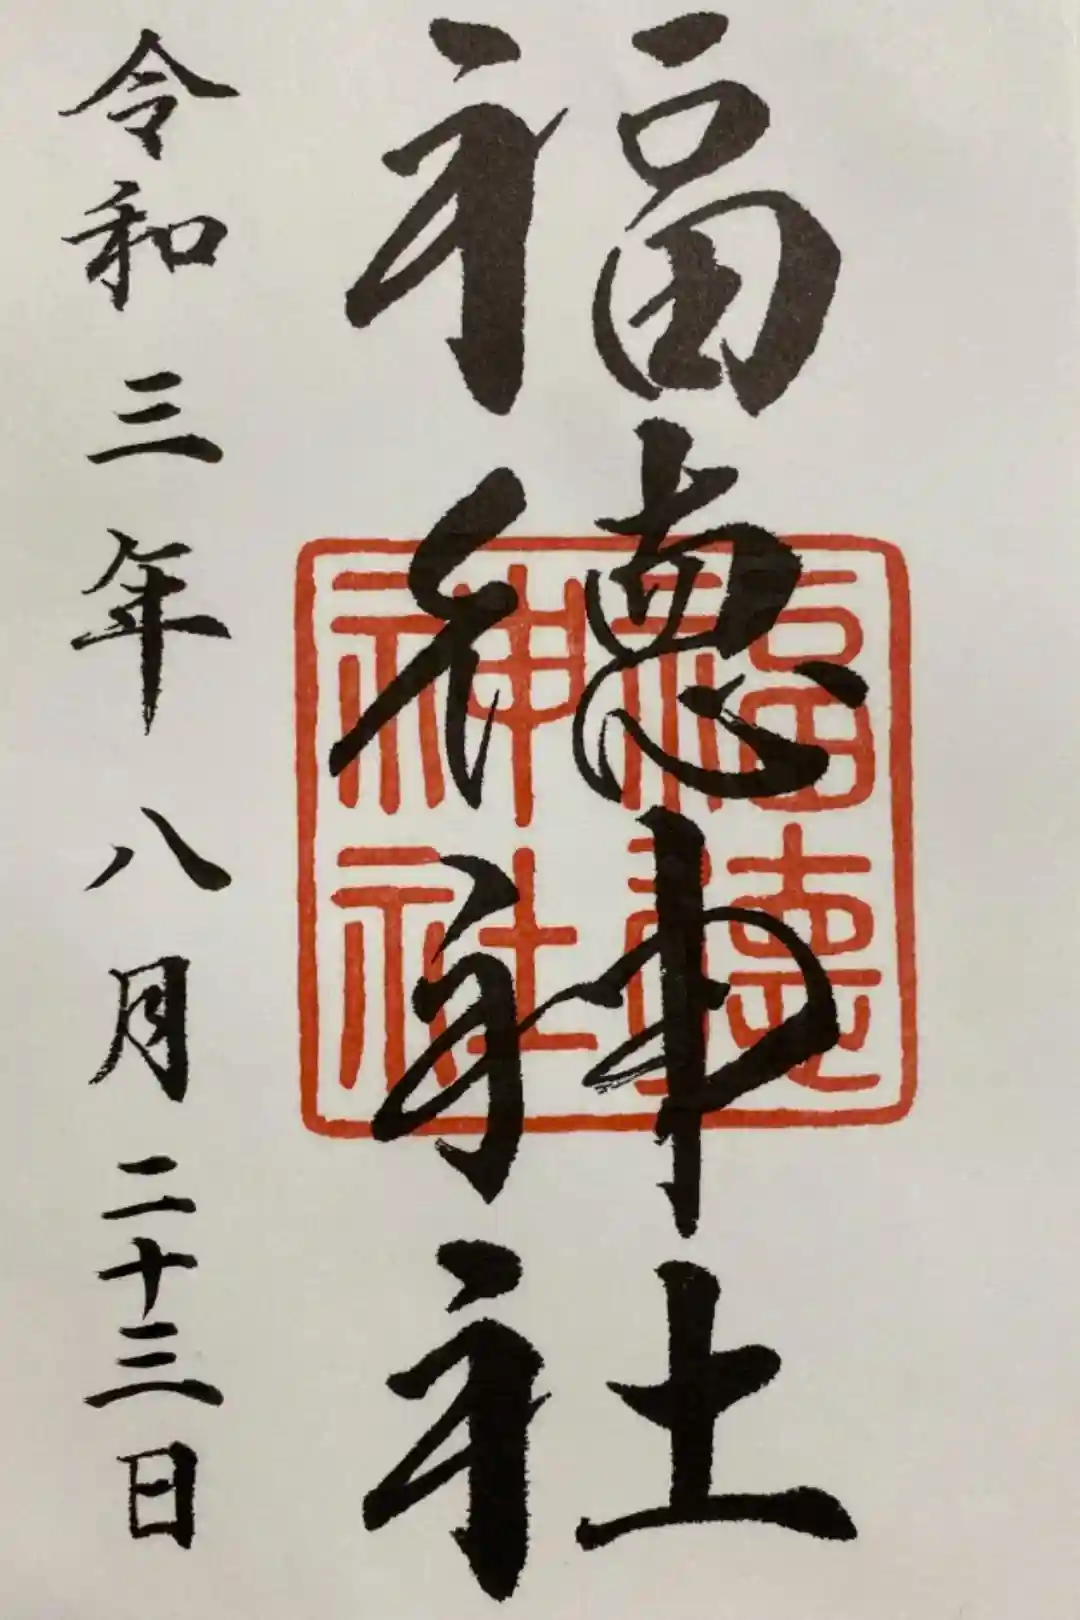 福徳神社
福徳神社
令和三年八月二十三日